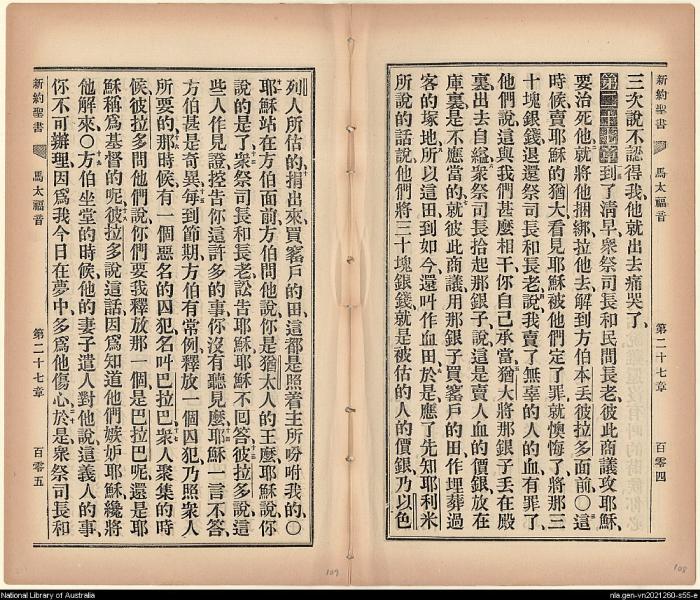 新約聖書 馬太福音 第二十七章 百零四
三次說不認得我他就出去痛哭了、
第二十七章到了淸早衆祭司長和民間長老彼此商議攻耶穌、
要治死他就將他捆綁拉他去解到方伯本丟彼拉多面前、〇這
時候賣耶穌的猶大看見耶穌被他們定了罪就懊悔了將那三
十塊銀錢退還祭司長和長老說我賣了無辜的人的血有罪了、
他們說這與我們甚麼相干你自己承當猶大將那銀子丟在殿
裏出去自縊衆祭司長拾起那銀子說這是賣人血的價銀放在
庫裏是不應當的、就彼此商議用那銀子買窰戶的田作埋葬過
客的塚地所以這田到如今還叫作血田於是應了先知耶利米
所說的話說他們將三十塊銀錢就是被估的人的價銀乃以色
列人所估的捐出來買窰戶的田這都是照着主所吩咐我的、〇
耶穌站在方伯面前方伯問他說你是猶太人的王麼耶穌說你
說的是了衆祭司長和長老訟告耶穌耶穌不回答彼拉多說這
些人作見證控告你這許多的事你沒有聽見麼耶穌一言不答、
方伯甚是奇異每到節期方伯有常例釋放一個囚犯乃照衆人
所要的那時候有一個惡名的囚犯名叫巴拉巴衆人聚集的時
候彼拉多問他們說你們要我釋放那一個是巴拉巴呢還是耶
穌稱爲基督的呢彼拉多說這話因爲知道他們嫉妒耶穌纔將
他解來〇方伯坐堂的時候他的妻子遣人對他說這義人的事、
你不可辦理因爲我今日在夢中多爲他傷心於是衆祭司長和
新約聖書 馬太福音 第二十七章 百零五
109
108
National Library of Australia
nla.gen-vn2021260-s55-e